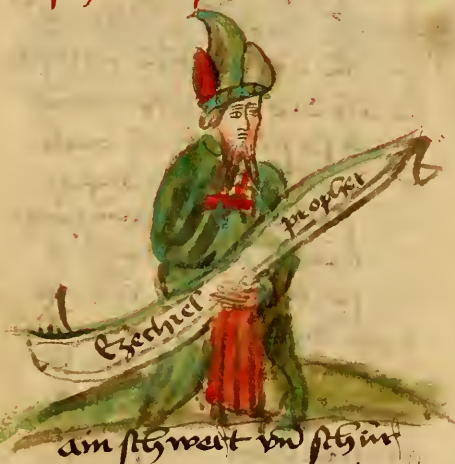 Ezechiel prophet
ain schwert vnd schirm